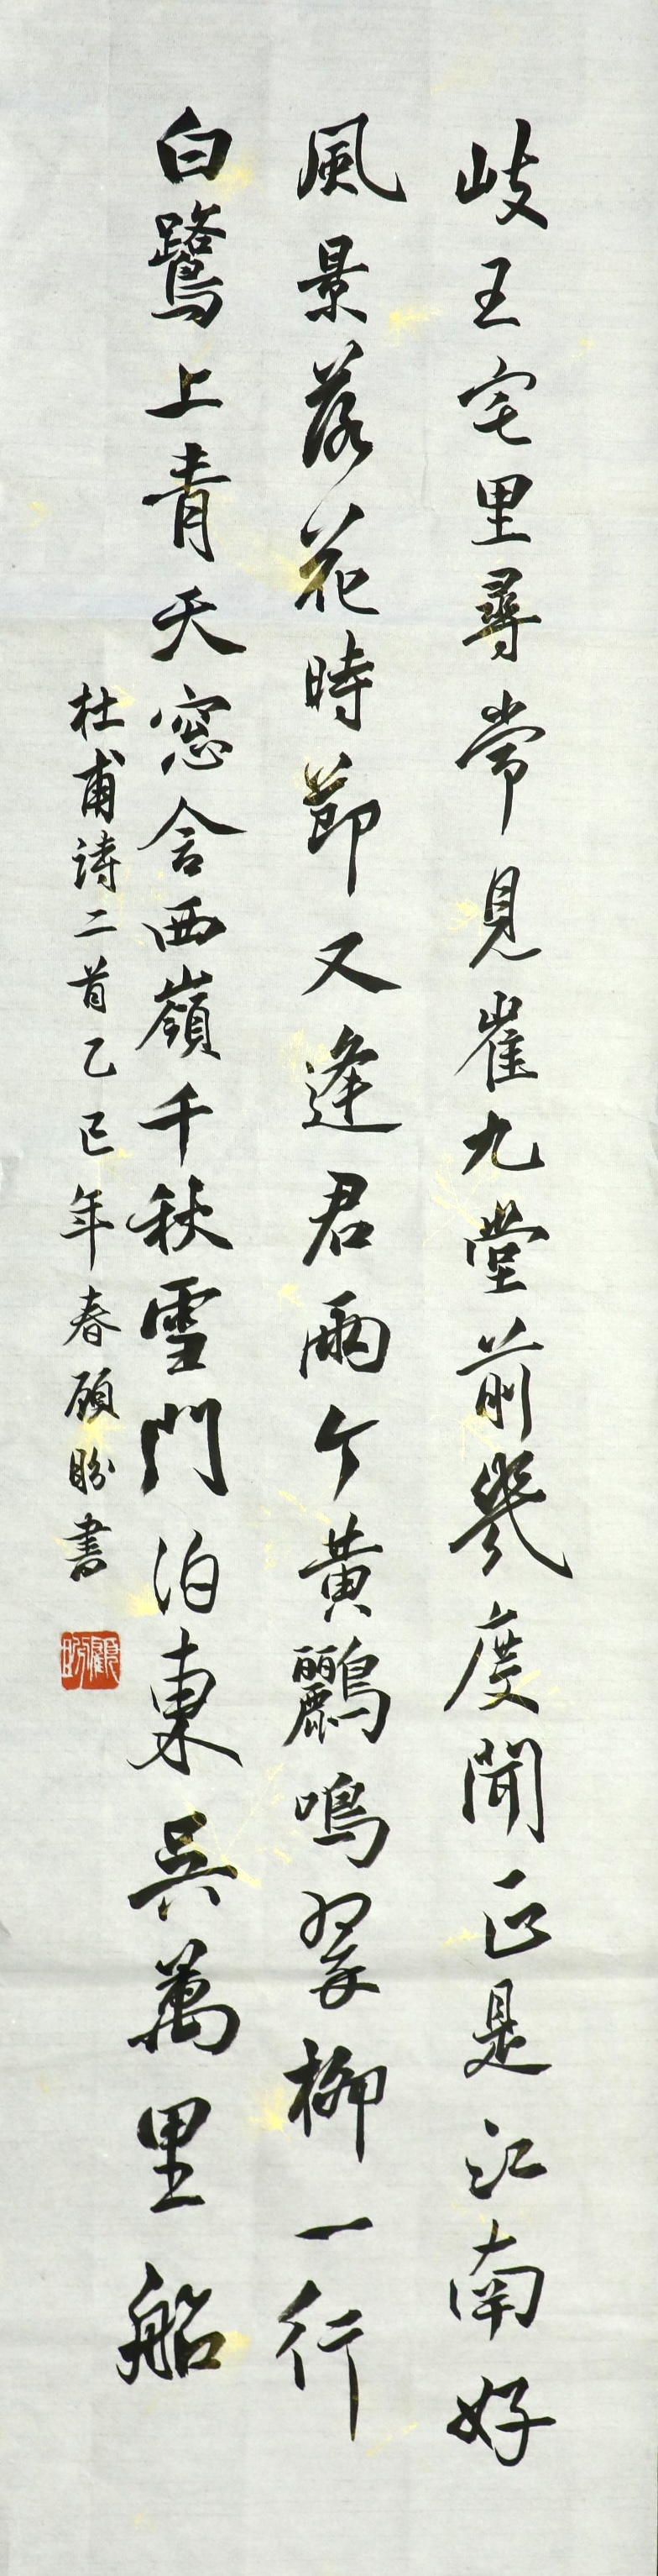 岐王宅里尋常見崔九堂前幾度聞正是江南好
風景落花時節又逢君兩个黃鸝鳴翠柳一行
白鷺上青天窓含西嶺千秋雪門泊東吳萬里船
杜甫詩二首乙巳年春顾盼書
顧盼